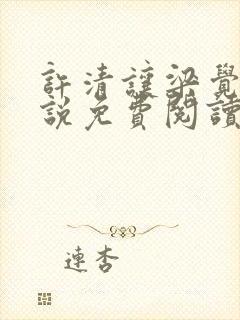 許清讓梁覺
說免費閱讀
連杏